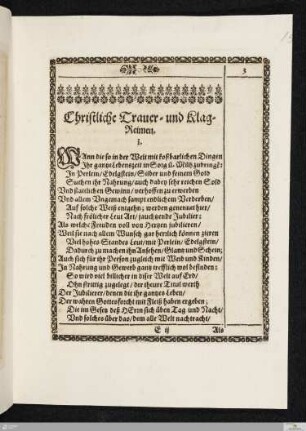 3
Christliche Trauer- und Klag-
Reimen.
I.
WAnn die so in der Welt mit kostbarlichen Dingen
Ihr gantze Lebenszeit in Sorg u. Mühe zubringē:
In Perlein/ Edelgstein/ Silber und feinem Gold
Suchen ihr Nahrung/ auch dabey sehr reichen Sold
Und stattlichen Gewinn/ verhoffen zu erwerben
Und allem Ungemach sampt endlichem Verderben/
Auf solche Weiß entgehn; werden genennet hier/
Nach frölicher Leut Art/ jauchzende Jubilier:
Als welche Freuden voll von Hertzen jubilieren/
Weil sie nach allem Wunsch gar herrlich können zieren
Viel hohes Standes Leut/ mit Perlein/ Edelgstein/
Dadurch zu machen ihn Ansehen/ Glantz und Schein;
Auch sich für ihr Person zugleich mit Weib und Kinden/
In Nahrung und Gewerb gantz trefflich wol befinden:
So wird viel billicher in diser Welt auf Erd/
Ohn streitig zugelegt/ der theure Titul werth
Der Jubilierer/ denen die ihr gantzes Leben/
Der wahren Gottesforcht mit Fleiß haben ergeben;
Die im Gesetz deß HErrn sich üben Tag und Nacht/
Und solches über das/ dem alle Welt nachtracht/
E ij
Als